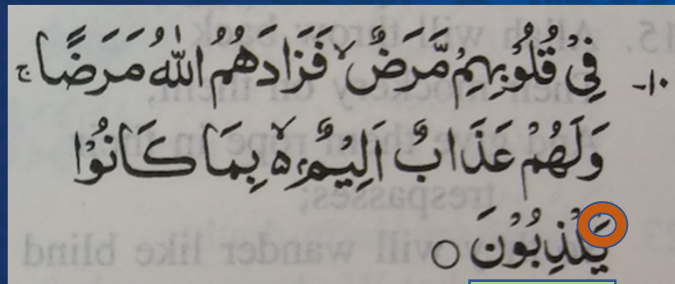 ۱۰- فِيْ قُلُوْبِهِمْ مَّرَضٌ ۙ فَزَادَهُمُ اللّٰهُ مَرَضًا ۚ
وَلَهُمْ عَذَابٌ اَلِيْمٌۢ ۙ۬ بِمَا كَانُوْا
يَكْذِبُوْنَ ○